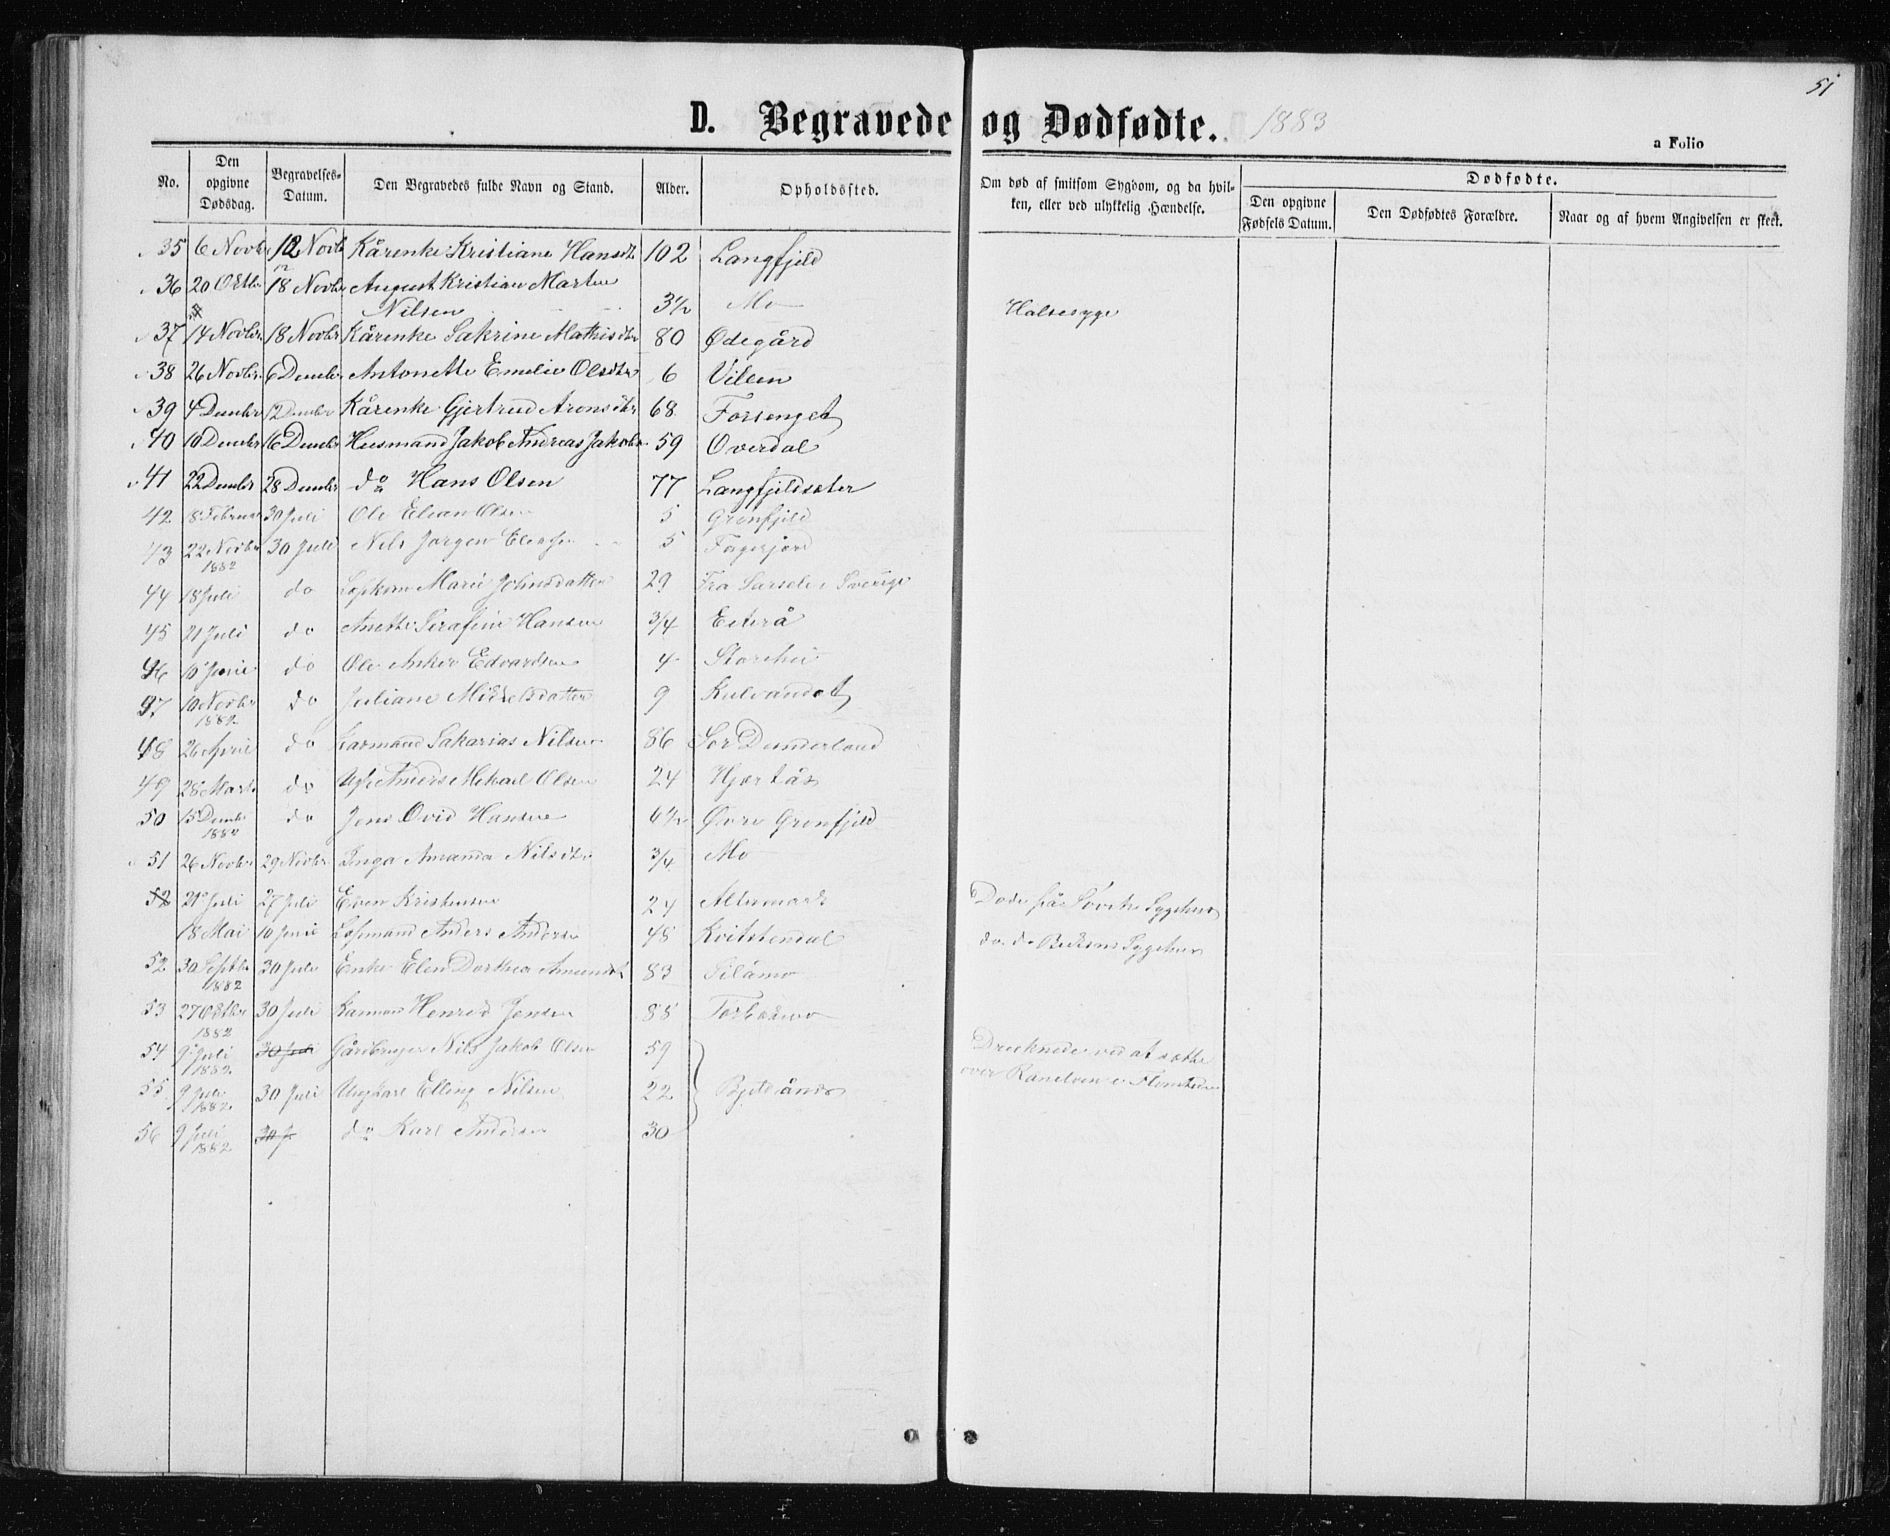 51
D. Begravede og Dødfødte. 1883
a Folio
No. Den opgivne Dødsdag. Begravelses-Datum. Den Begravedes fulde Navn og Stand. Alder. Opholdssted. Om død af smitsom Sygdom, og da hvilken, eller ved ulykkelig Hændelse. Dødfødte. Den opgivne Fødsels Datum. Den Dødfødtes Forældre. Naar og af hvem Angivelsen er skeet.
35 6 Novbr 12 Novb Kårenke Kristiane Hansdtr 102 Langfjeld
36 20 Oktbr 18 Novbr August Kristian Martin
Nilsen 3½ Mo Halsesyge
37 14 Novbr 18 Novbr Kårenke Sakrine Mathisdtr 80 Ødegård
38 26 Novbr 6 Decmbr Antonette Emelie Olsdtr 6 Vilem
39 4 Decmbr 12 Decmbr Kårenke Gjertrud Aronsdtr 68 Forsenget
40 10 Decmbr 16 Decmbr Husmand Jakob Andreas Jakobs 59 Overdal
41 22 Decmbr 28 Decmbr do Hans Olsen 77 Langfjeldsæter
42 18 Februar 30 Juli Ole Elean Olsen 5 Grønfjeld
43 22 Novbr 30 Juli Nils Jørgen 5 Fagerjord
1882
44 18 Juli do Marie Johnsdatter 29 Fra Sorsele i Sverige
45 21 Juli do Anette Serafine Hansen 3/4 Eiterå
46 10 Juni do Ole Anker Edvardsen 4 Storhei
47 10 Novbr do Juliane Mikkelsdatter 9 Kulvandet
1882
48 26 April do Sakarias Nilsen 86 Sør Dunderland
49 28 Marts do Anders Mekael Olsen 24 Hjartås
50 15 Decmbr do Jens Ovid Hansen 6½ Øvre Grønfjeld
51 26 Novbr 29 Novbr Inga Amanda Nilsdtr 3/4 Mo
52 21 Juli 27 Juli Even Kristensen 24 Altermark Døde på Sygehus
18 Mai 10 Juni Anders Andersen 48 Kvitstendal do. do Sygehus
52 30 Septbr 30 Juli Enke Elen Dorthea Amundsdt 83 Silåmo
1882
53 27 Oktbr 30 Juli Henrik Jensen 88
1882
54 9 Juli 30 Juli Gårdbruger Nils Jakob Olsen 59 Druknede ved at sætte
1882
55 9 Juli 30 Juli Ungkarl Elling Nilsen 22 Bjeldånes over Ranelven i Flomtiden
1882
56 9 Juli 30 J do Karl Andersen 30
1882